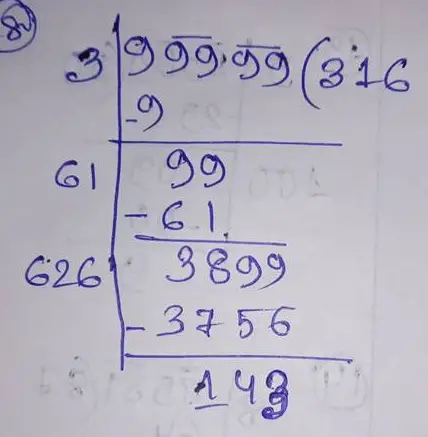 8
3 9 99.99 ( 316
-9
61 99
-61
626 3899
-3756
143